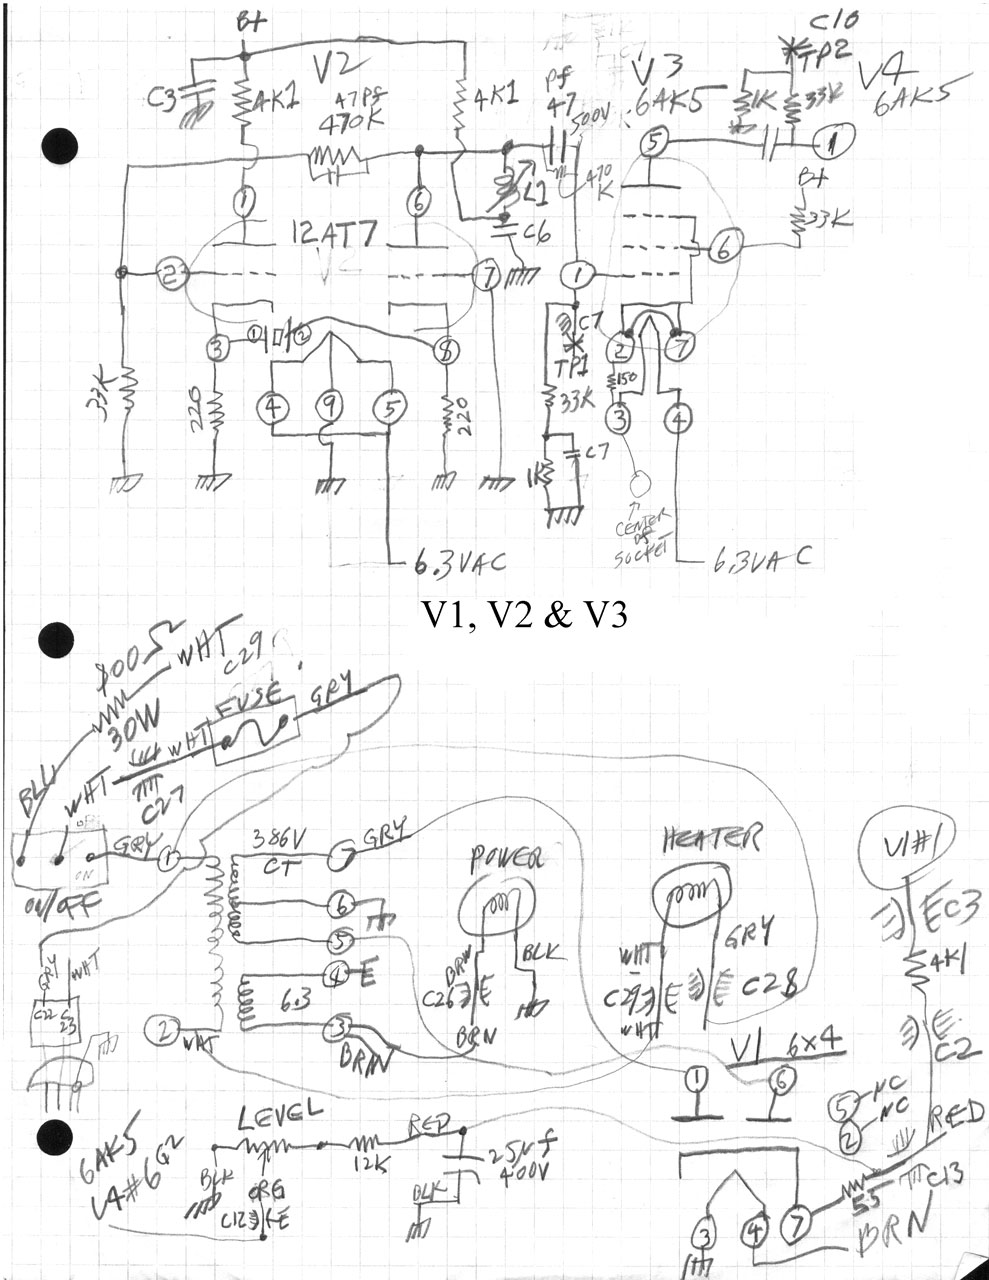 B+
C3
4K1
V2
47Pf
470K
4K1
Pf
47
500V
470
K
L1
C6
V3
6AK5
C10
TP2
V4
6AK5
1K
33K
5
1
B+
33K
6
1
6
12AT7
2
7
1
3
1
2
8
C7
TP1
2
7
150
33K
33K
220
4
9
5
220
3
4
C7
1K
CENTER
OF
SOCKET
6.3VAC
6.3VAC
V1, V2 & V3
800Ω
WHT
C29
30W
WHT
FUSE
GRY
BLU
WHT
C27
GRY
1
ON
ON/OFF
386V
CT
7
GRY
6
5
4
E
6.3
3
BRN
2
WHT
GRY
WHT
C22
C23
POWER
BRN
C26
E
BRN
BLK
HEATER
WHT
C29
E
WHT
GRY
C28
V1#1
E
C3
4K1
E
C2
V1
6X4
1
6
5
NC
2
NC
RED
C13
55
3
4
7
BRN
6AK5
V4#6
G2
LEVEL
BLK
ORG
C12
E
12K
RED
25µf
400V
BLK